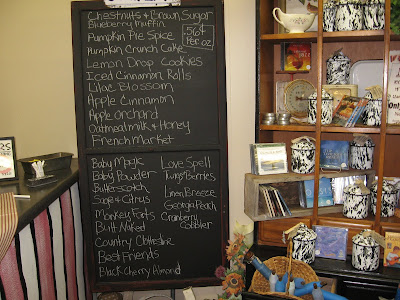 Chestnuts & Brown Sugar
Blueberry Muffin
Pumpkin Pie Spice
Pumpkin Crunch Cake
56¢
Per oz
Lemon Drop Cookies
Iced Cinnamon Rolls
Lilac Blossom
Apple Cinnamon
Apple orchard
Oatmeal milk & Honey
French Market
Baby Magic
Baby Powder
Butterscotch
Sage & Citrus
Monkey Farts
Butt Naked
Country Clothesline
Best Friends
Black Cherry Almond
Love Spell
Lemon Breeze
Georgia Peach
Cranberry
Cobbler